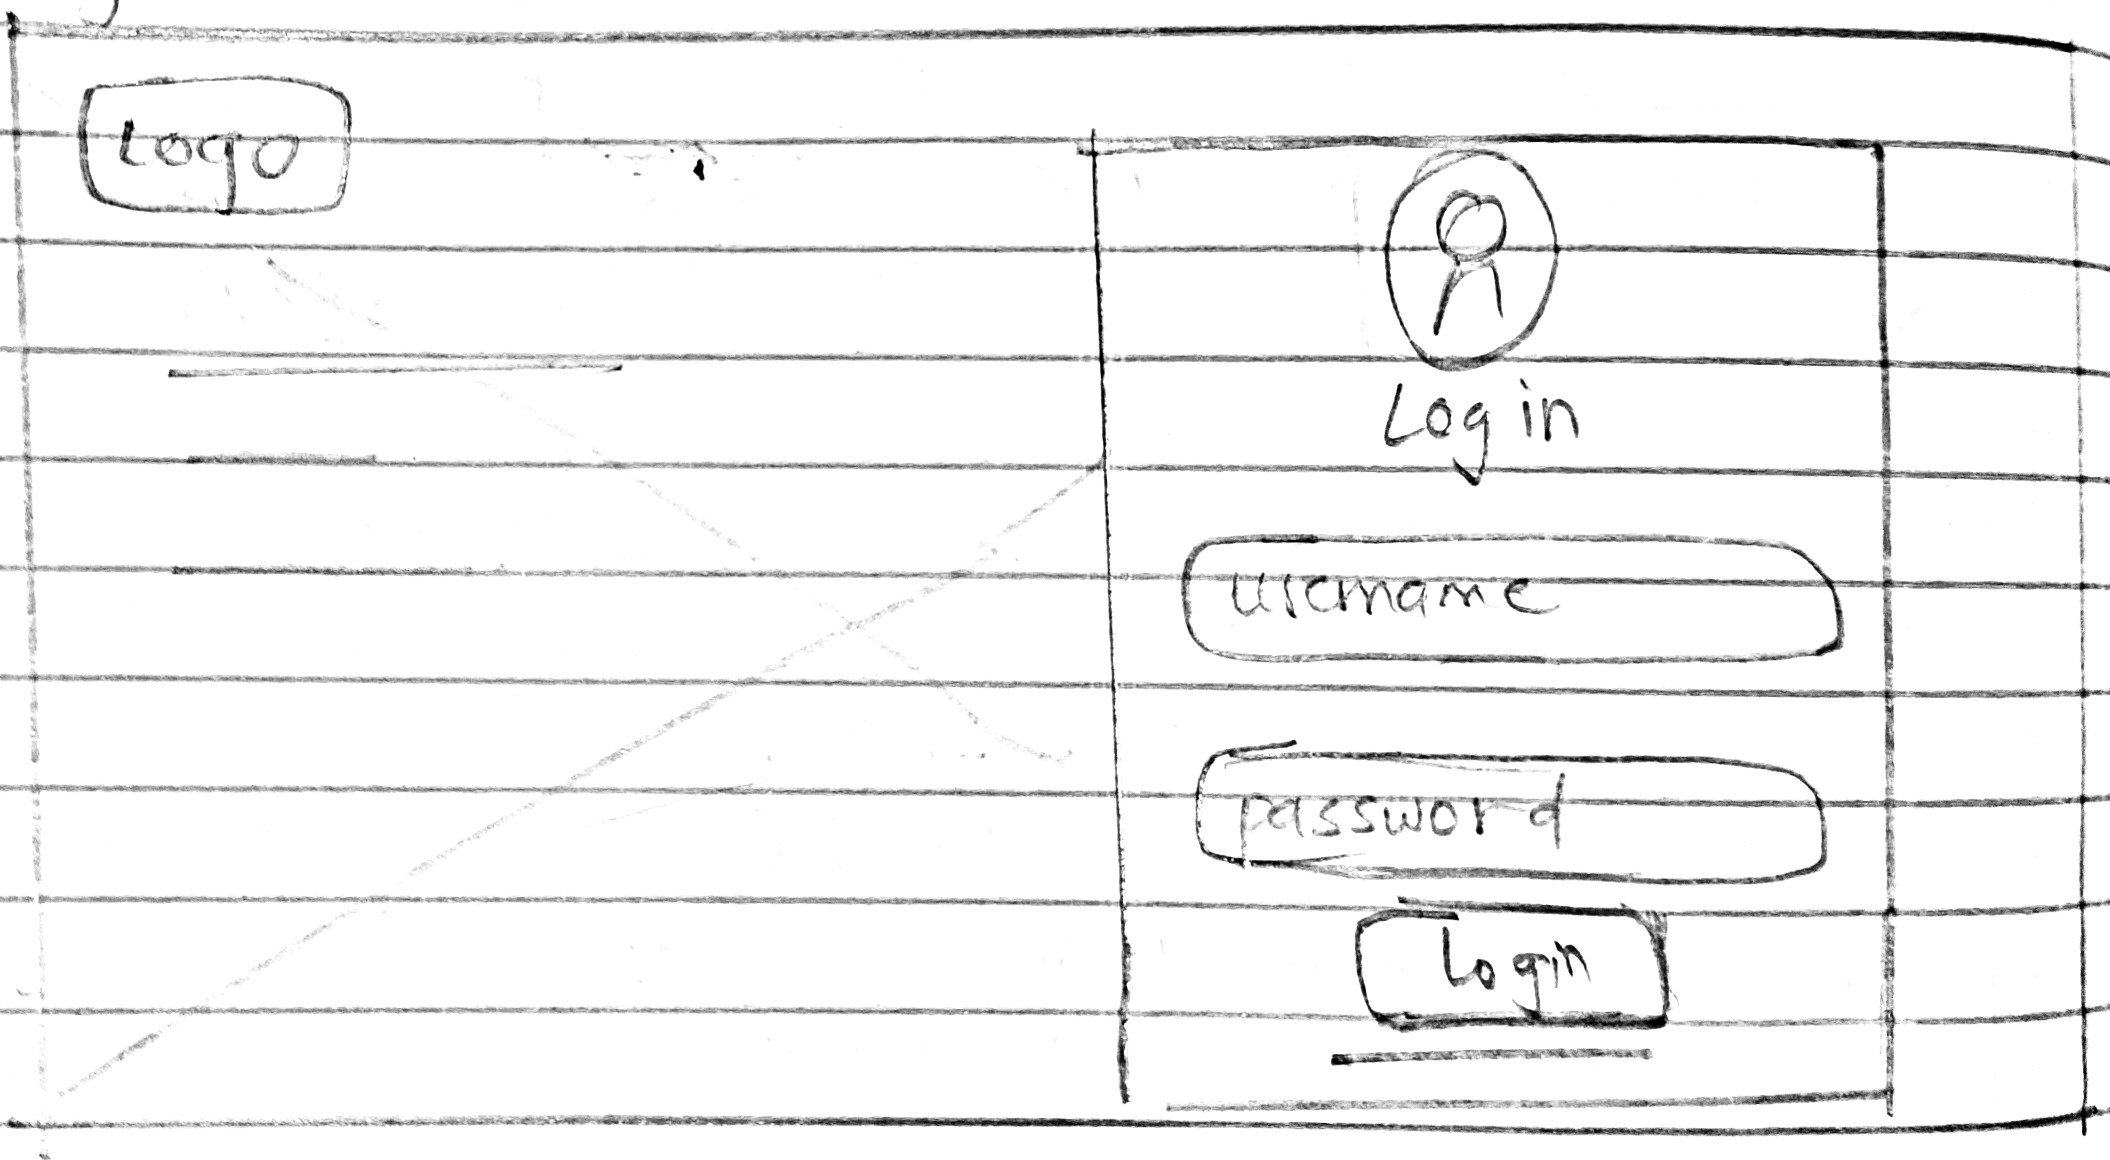 Logo
Log in
username
password
Login